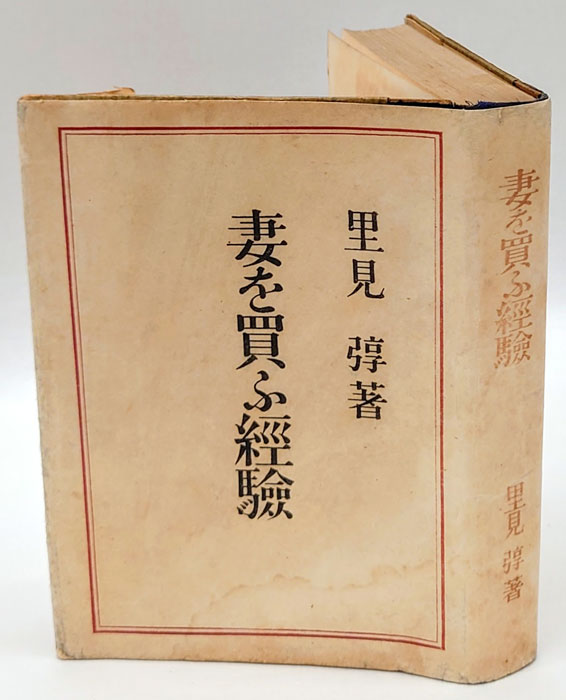 里見弴著
妻を買ふ經驗
妻を買ふ經驗
里見弴著